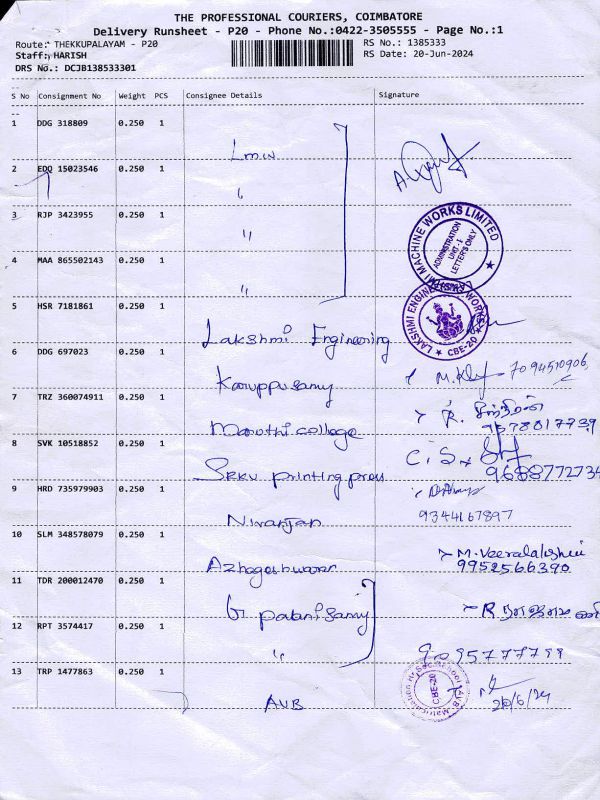 THE PROFESSIONAL COURIERS, COIMBATORE
Delivery Runsheet - P20 - Phone No.:0422-3505555 - Page No.:1
Route: THEKKUPALAYAM - P20 RS No.: 1385333
Staff: HARISH RS Date: 20-Jun-2024
DRS No.: DCJB138533301
S No Consignment No Weight PCS Consignee Details Signature
1 DDG 318809 0.250 1 Lmw
2 EDQ 15023546 0.250 1 "
3 RJP 3423955 0.250 1 "
MACHINE WORKS LIMITED
ADMINISTRATION
UNIT-I
LETTER'S ONLY
4 MAA 865502143 0.250 1 "
5 HSR 7181861 0.250 1 Lakshmi Engineering
LAKSHMI ENGINEERING WORKS
CBE-20
6 DDG 697023 0.250 1 Karuppusamy 7094510906
7 TRZ 360074911 0.250 1 Maruthi college
8 SVK 10518852 0.250 1 SRKV printing press
9 HRD 735979903 0.250 1 Niranjan
9344167897
10 SLM 348578079 0.250 1 M. Veeralakshmi
9952566390
11 TDR 200012470 0.250 1 G. palanisamy
12 RPT 3574417 0.250 1 "
9095777799
13 TRP 1477863 0.250 1 AVB
CBE-20
20/6/24